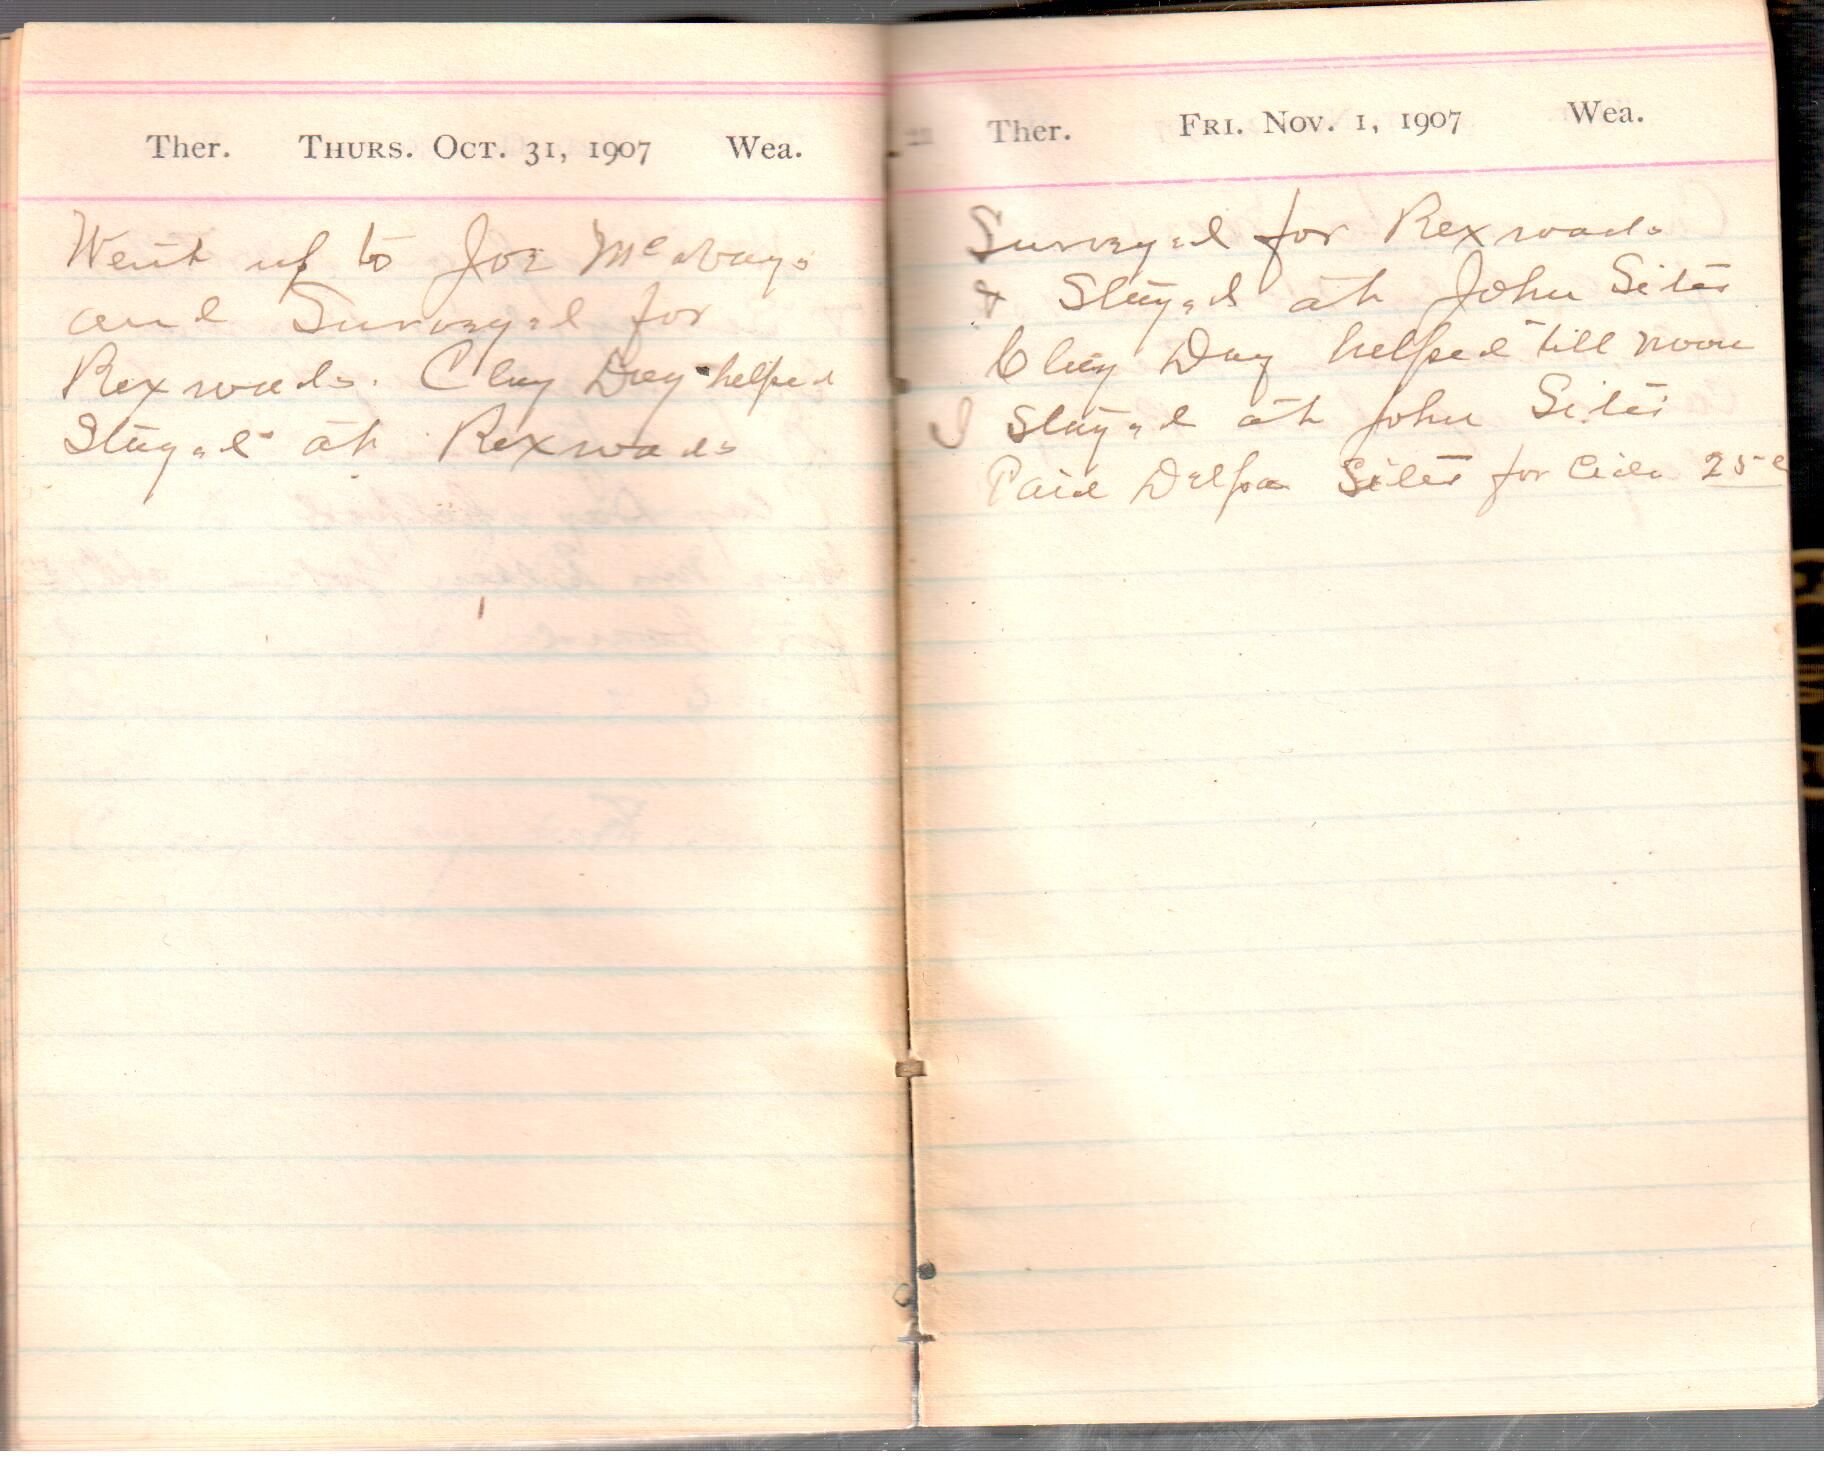 Ther. Thurs. Oct. 31, 1907 Wea.
Went up to Joe
and Surveyed for
Rexroads. Clay Day helped
Stayed at Rexroads
Ther. Fri. Nov. 1, 1907 Wea.
Surveyed for Rexroads
& Stayed at John Sites
Clay Day helped till noon
I Stayed at John Sites
Paid Delpa Sites for 25c